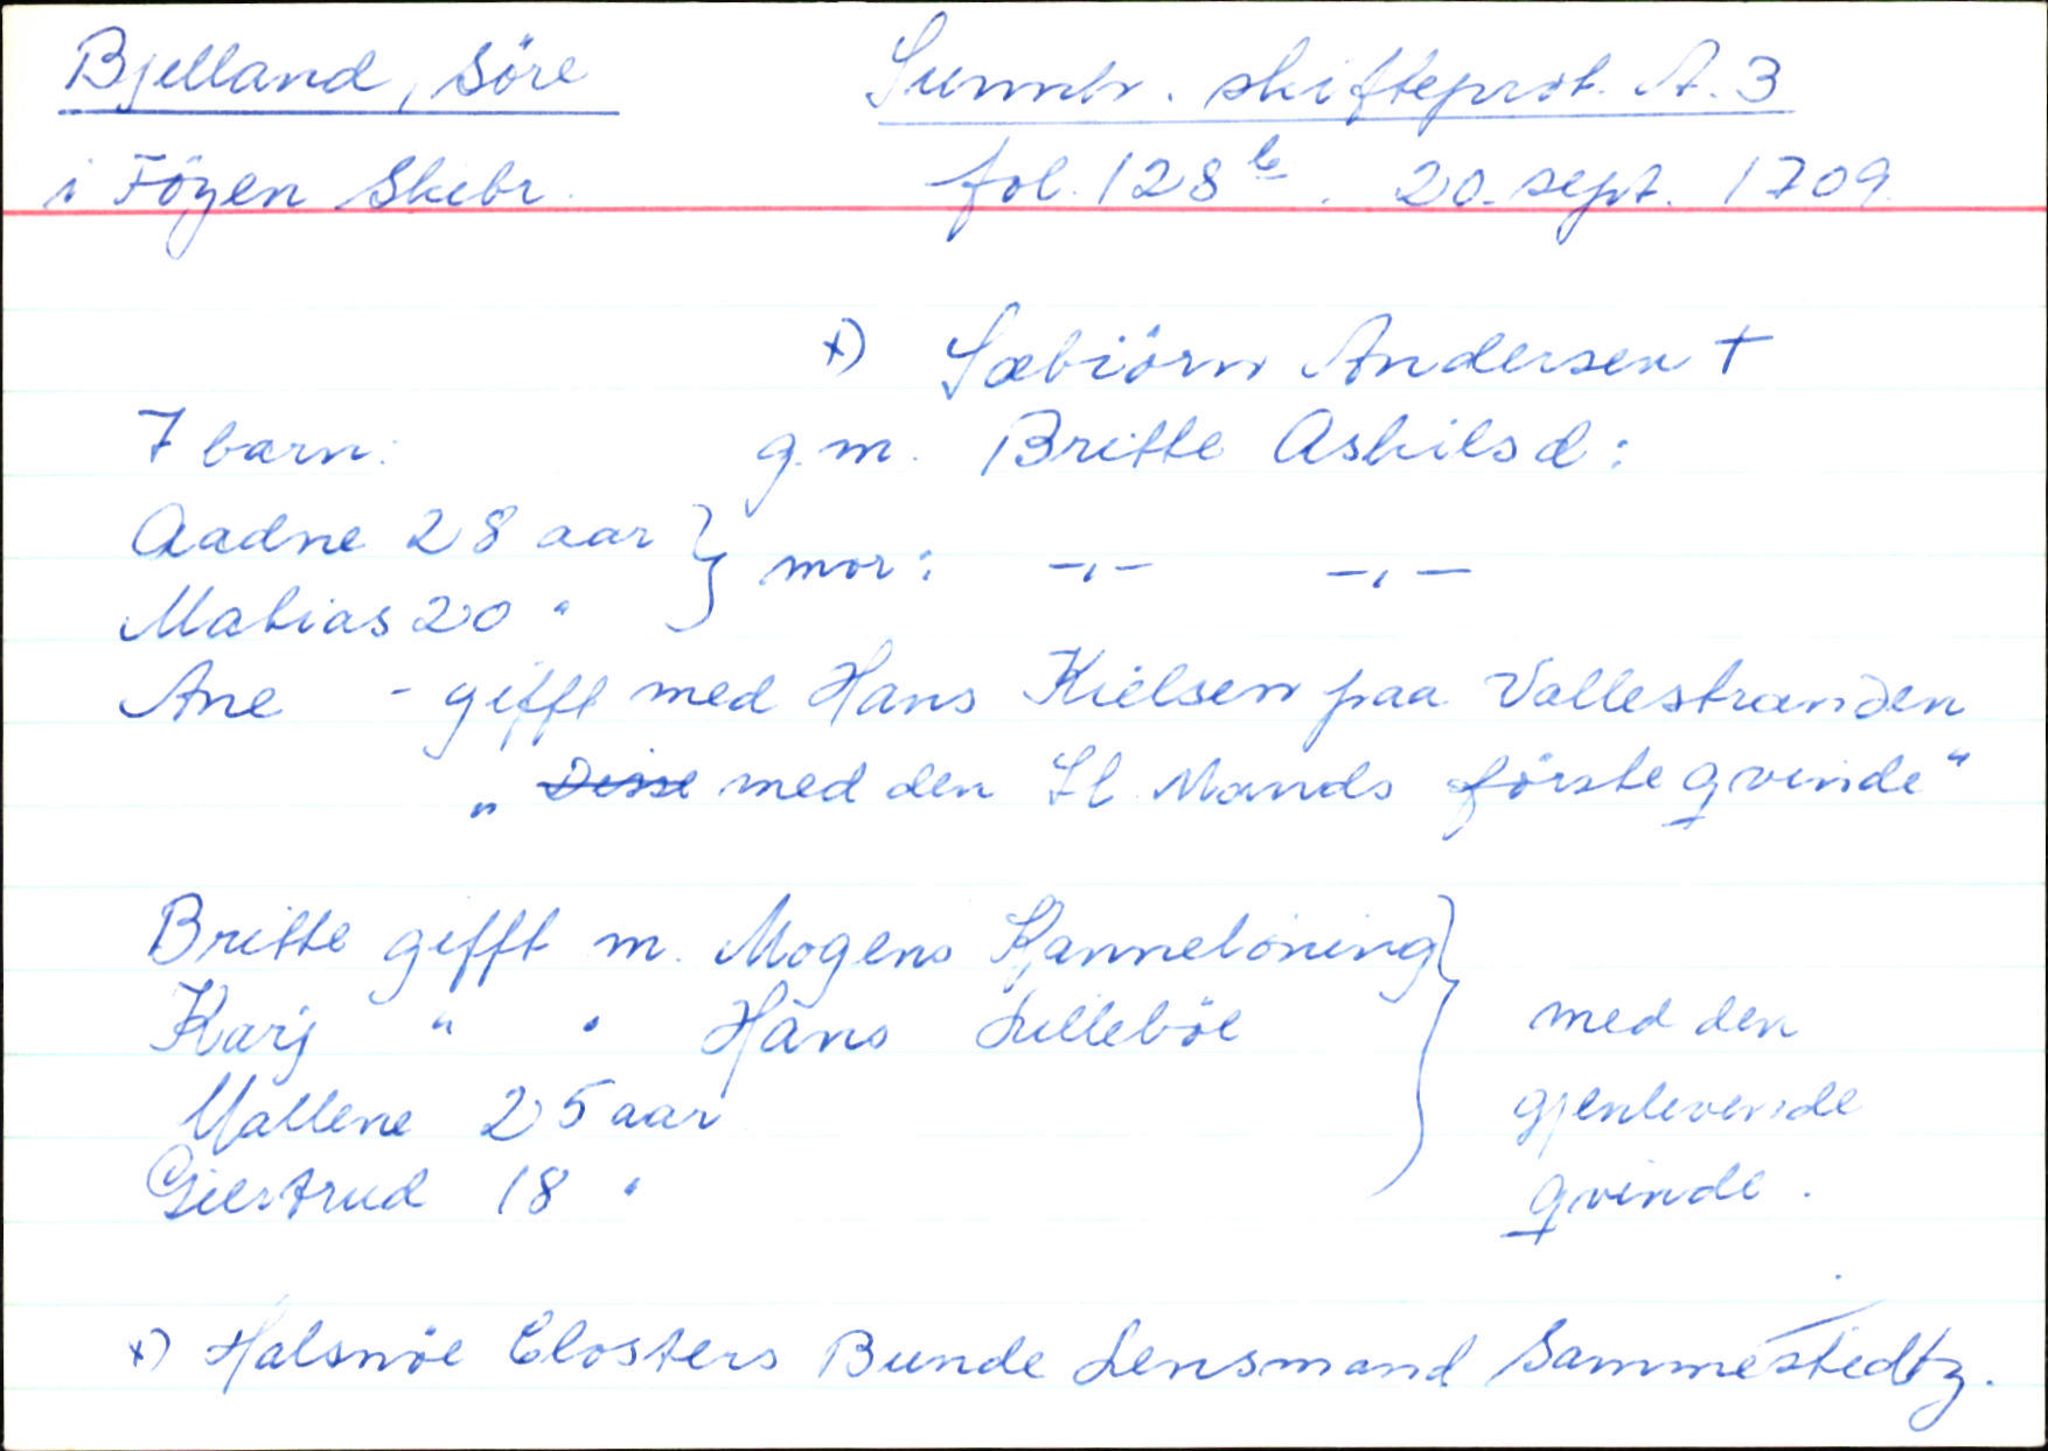 Bjelland, Söre Sunnh. skifteprot. A. 3
i Föyen Skibr. fol. 128 b. 20. sept. 1709.
x) Sæbiörn Andersen +
7 barn: g.m. Britte Askilsd:
Aadne 28 aar } mor: -,- -,-
Matias 20 "
Ane - gifft med Hans Kielsen paa Vallestranden
„ Disse med den Sl. Mands förste qvinde"
Britte gifft m. Mogens Kannelöning } med den gjenlevende qvinde.
Karj " " Hans Lilleböe
Mallene 25 aar
Giertrud 18 "
x) Halsnöe Closters Bunde Lensmand Sammestedtz.